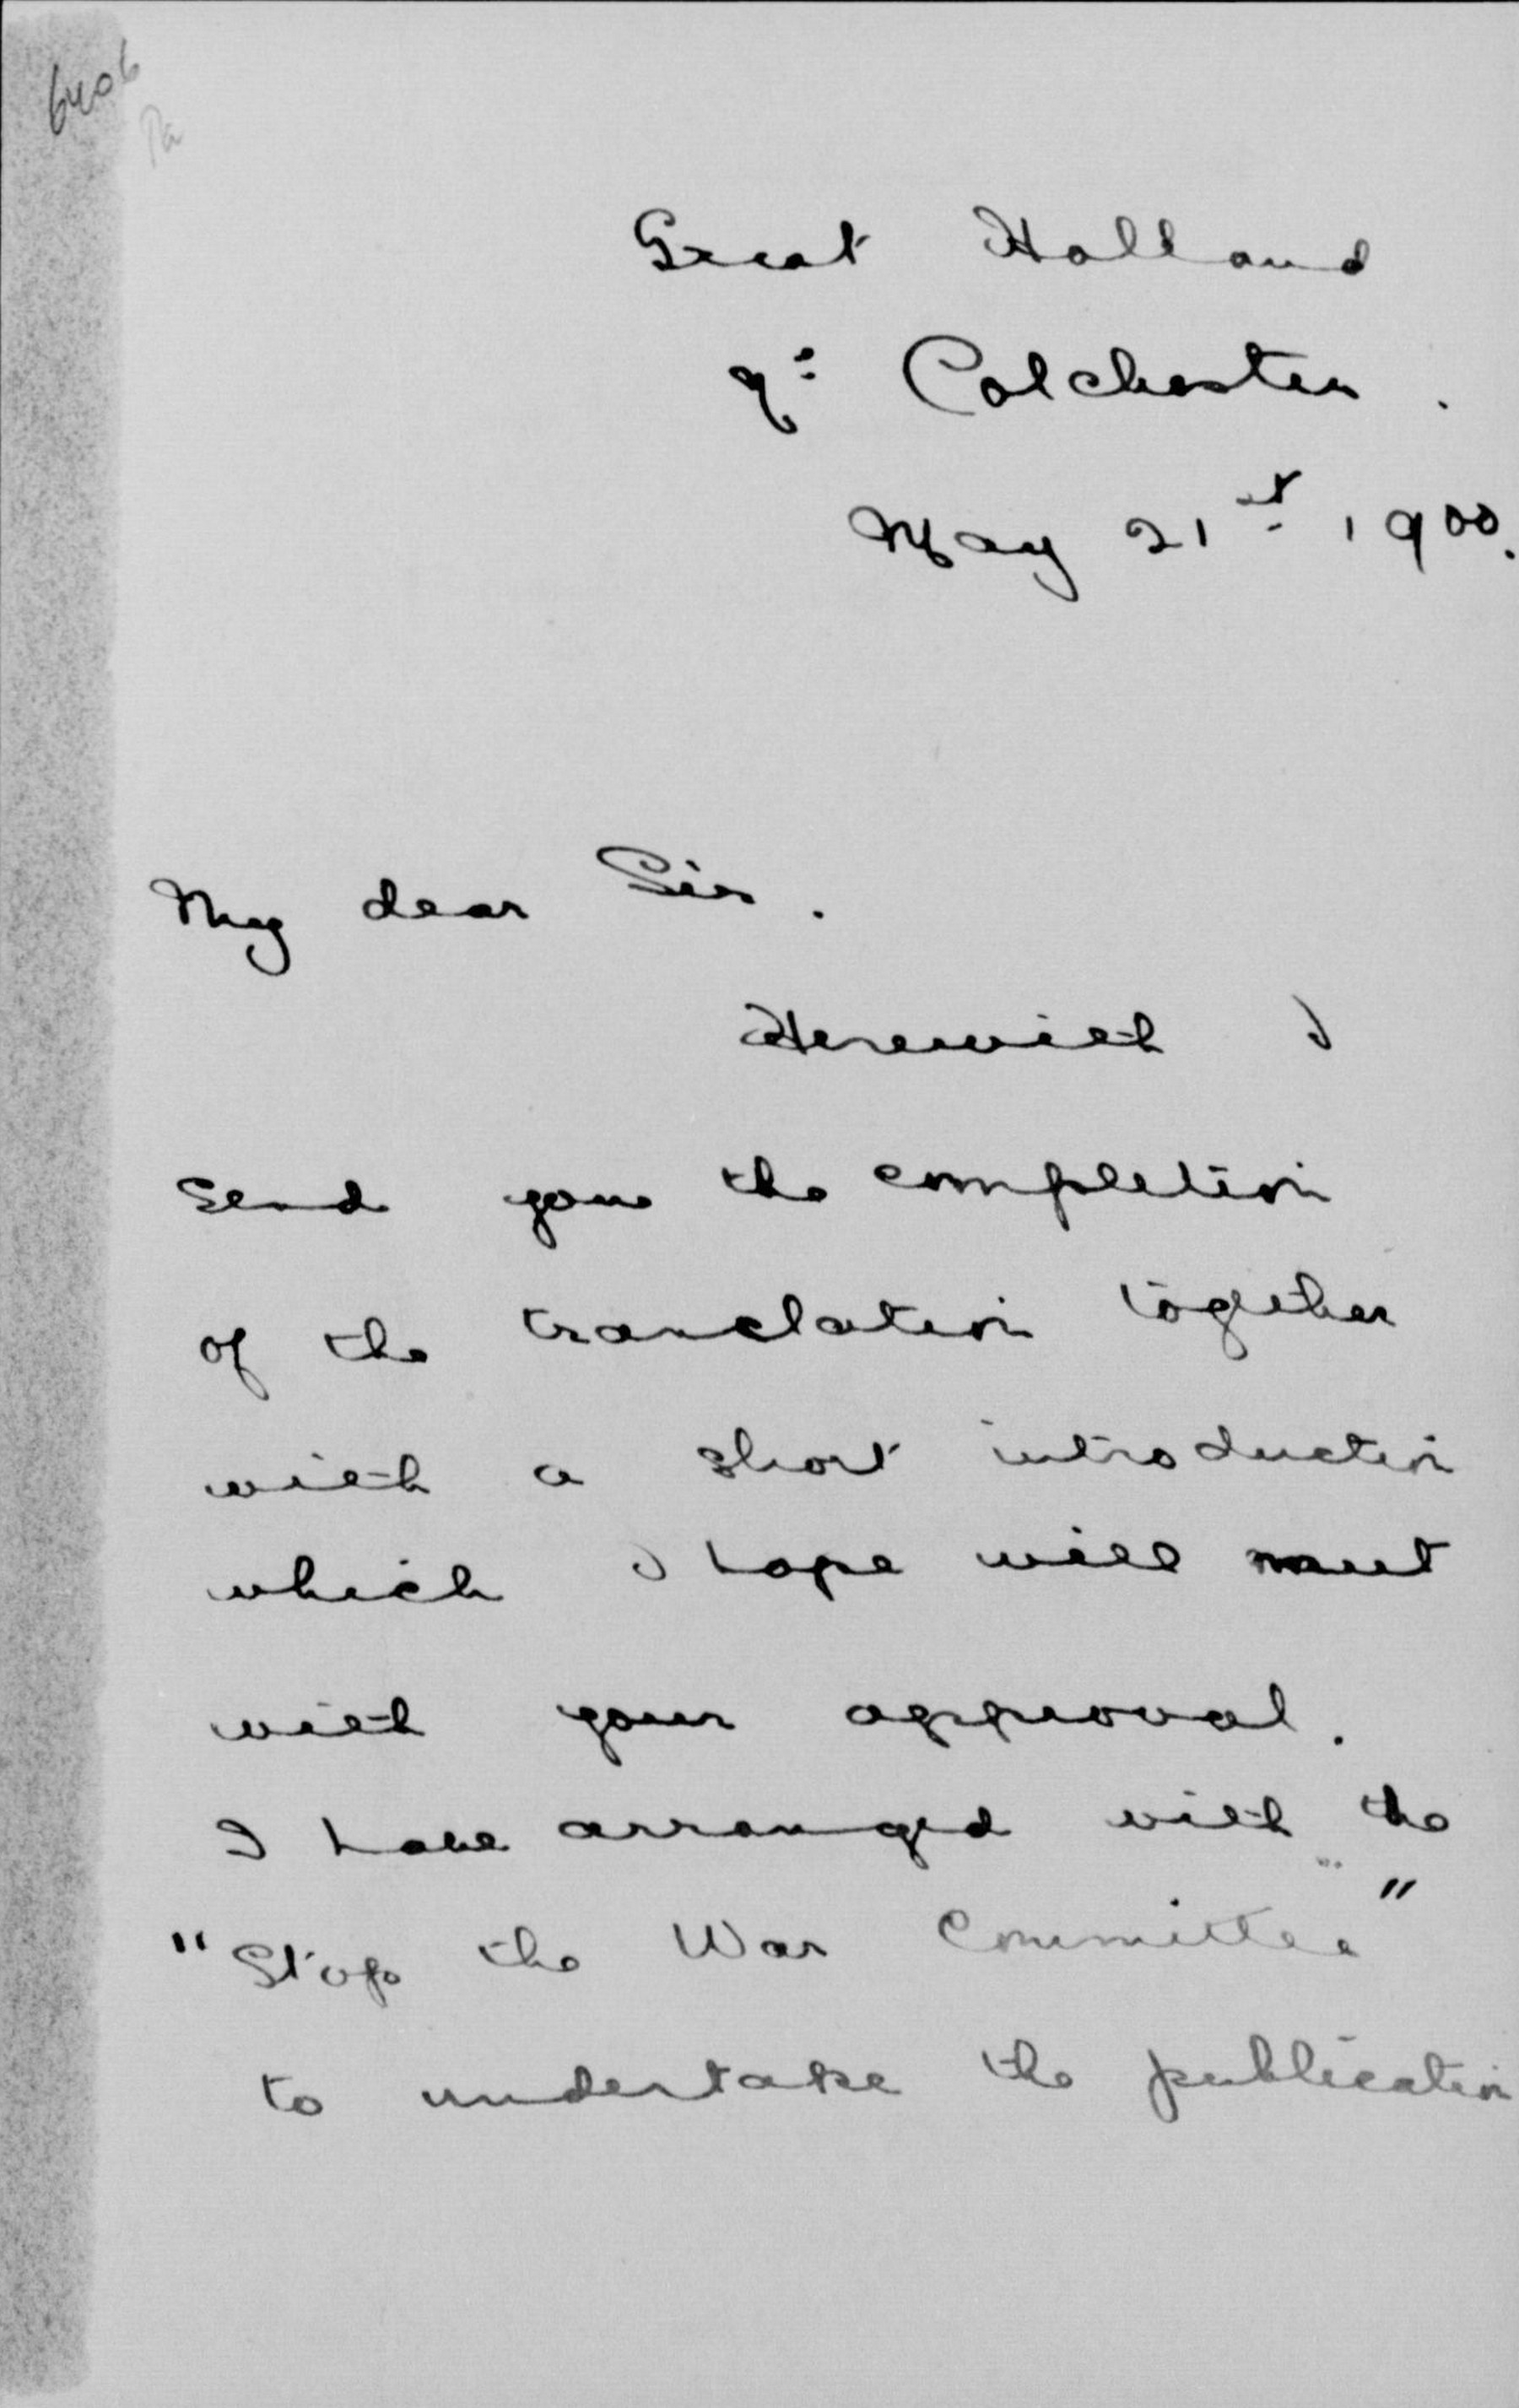 6406
Great Holland
Colchester.
May 21st 1900.
My dear Sir.
Herewith I
send you the completion
of the translation together
with a short introduction
which I hope will meet
with your approval.
I have arranged with the
"Stop the War Committee"
to undertake the publication